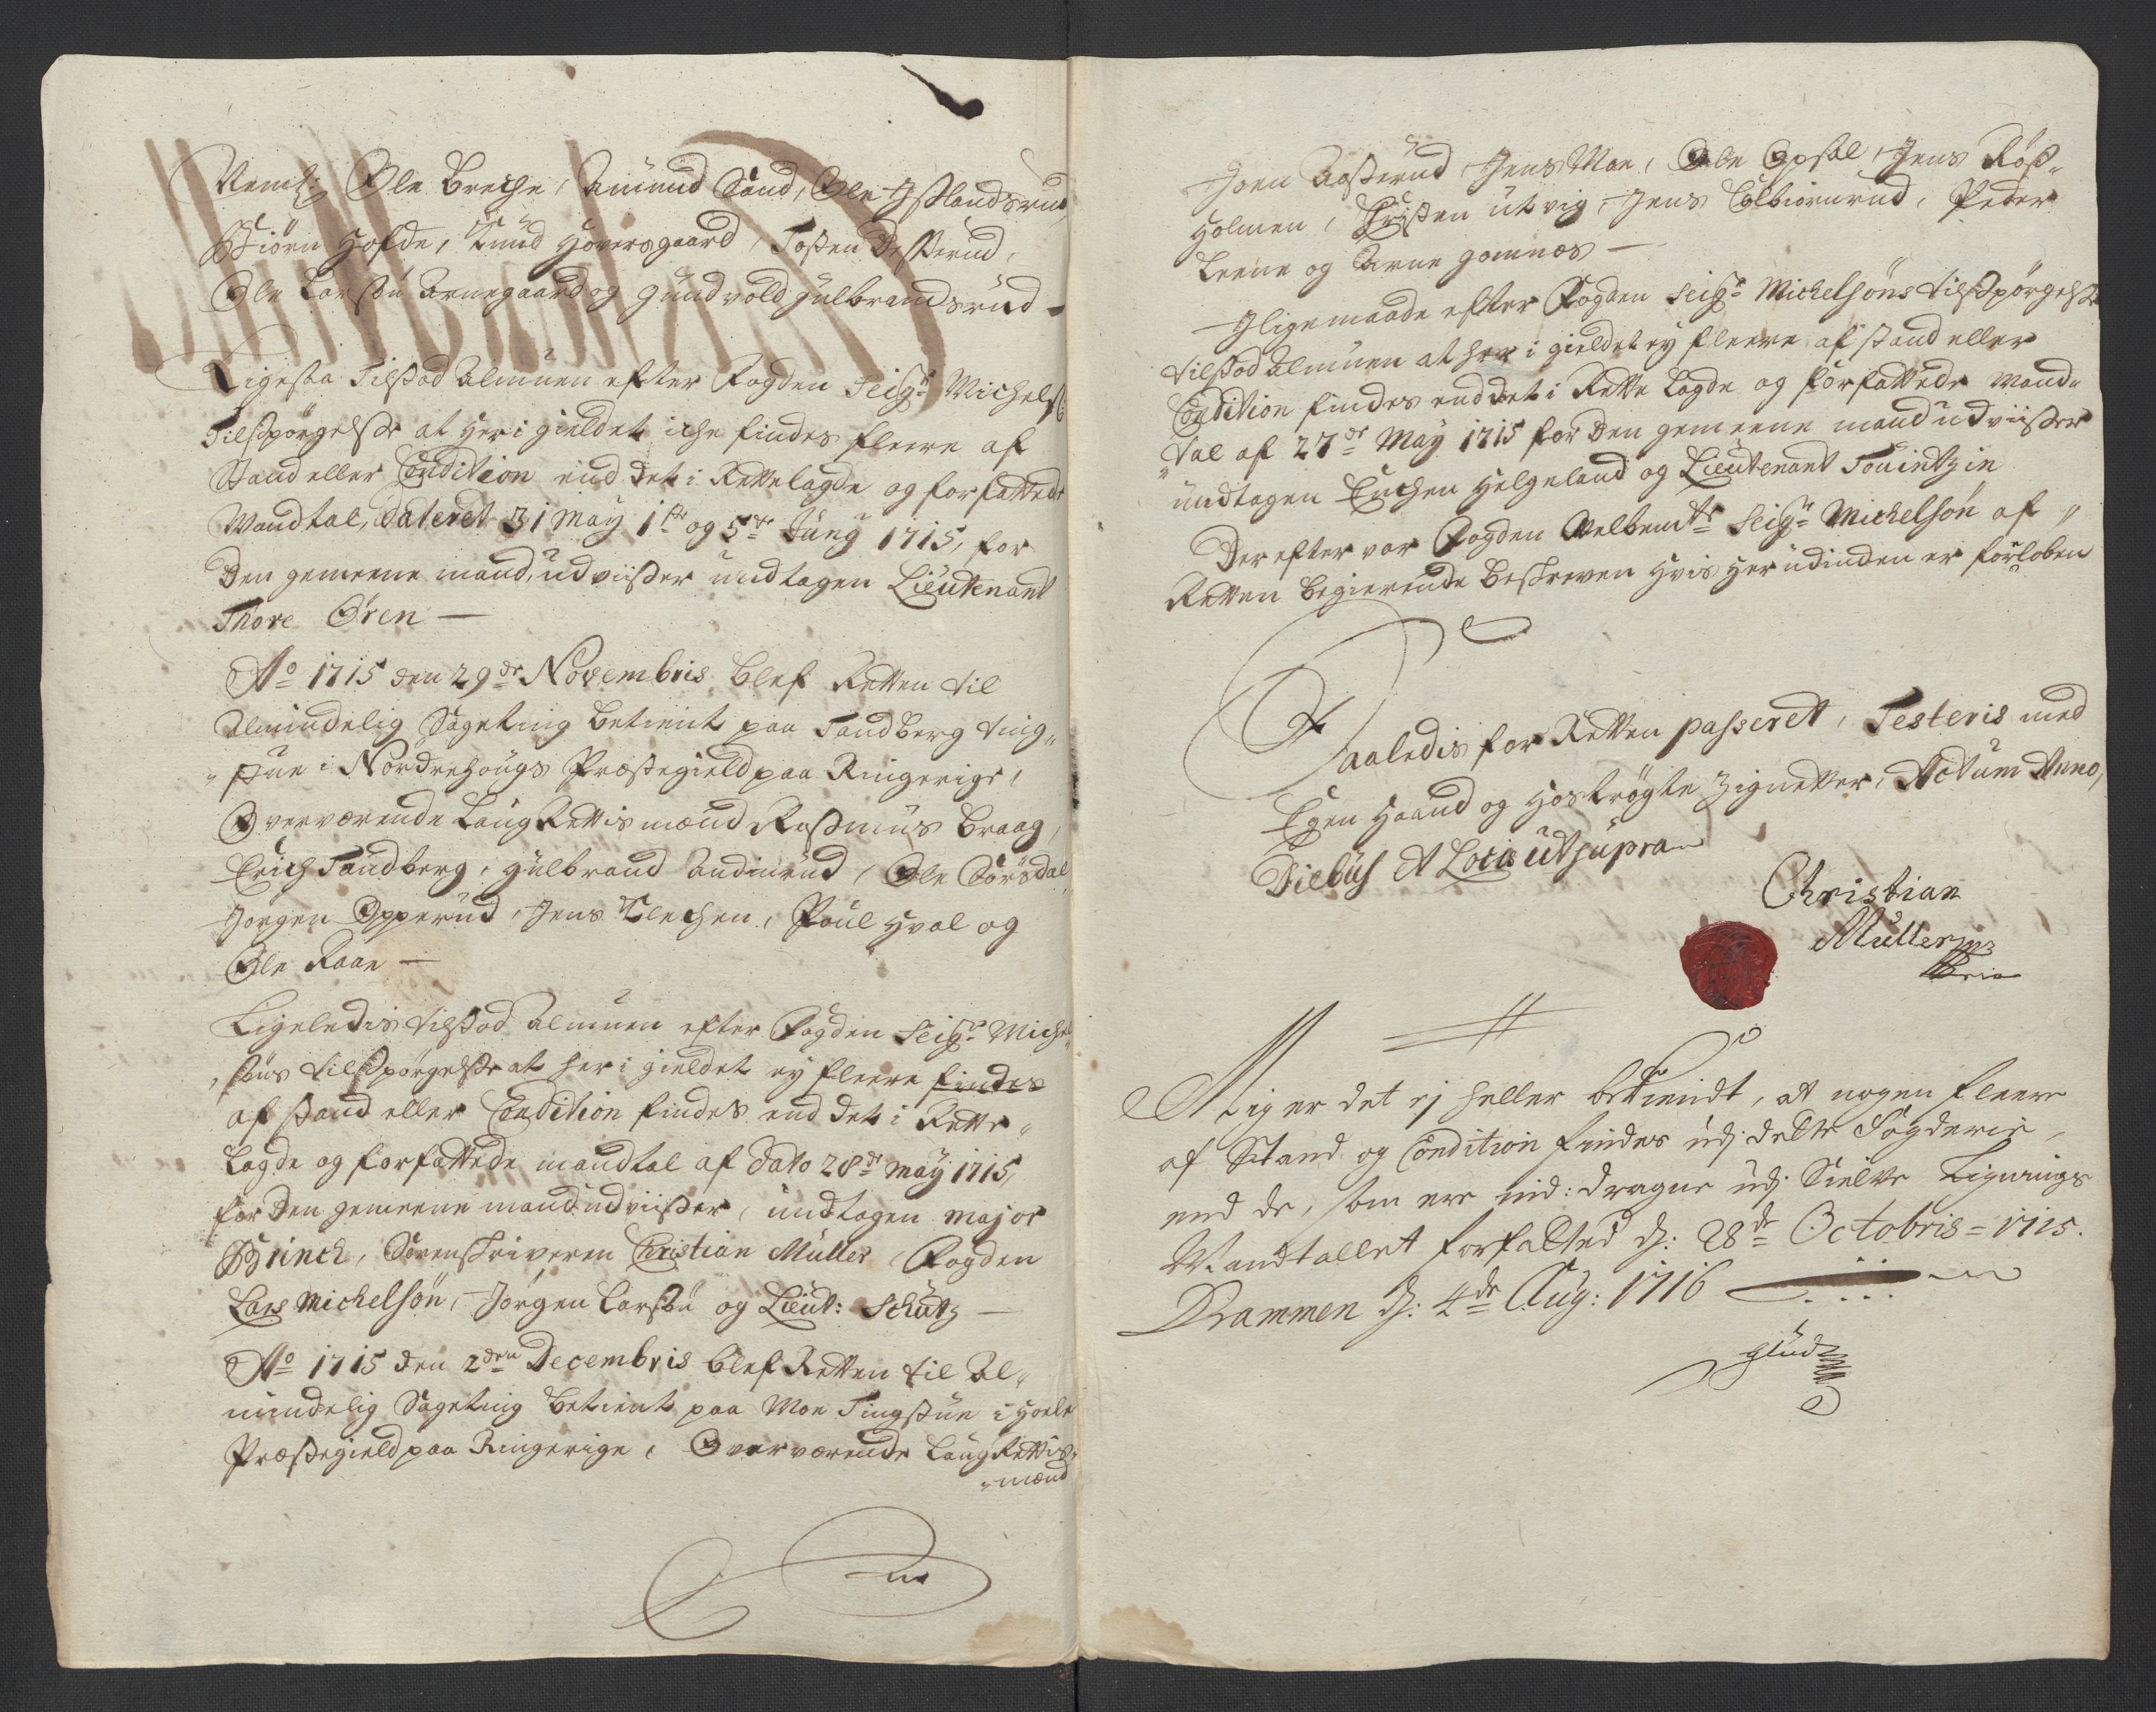 Neml: Ole Breche, Amund Sand, Ole Islandsrud,
Biörn Hofde, Knud Hoversgaard, Tosten Desserud,
Ole Larssön Arnegaard og Gundvold Gulbrandsrud –
Ligesaa Tilstod Almuen efter Fogden Seigr Michels:
Tilspörgelsse at her i gieldet iche findes fleere af
Stand eller Condition end det i Rettelagde og forfattede
Mandtal, Dateret 31 May 1ste og 5te Juny 1715, for
den gemeene mand, udviisser undtagen Lieutenant
Thore Ören –
Ao 1715 den 29de Novembris blef Retten til
Almindelig Sageting betient paa Tandberg ting„
„stue i Nordrehougs Præstegield paa Ringerige,
Overværende Laug Rettismænd Rasmus Braag,
Erich Tandberg, Gulbrand Andinrud, Ole Sörsdal,
Jörgen Opperud, Jens Klechen, Poul Hval og
Ole Raae –
Ligeledis tilstod Almuen efter Fogden Seigr Michel„
„söns tilspörgelsse at her i gieldet ey fleere findes
af stand eller Condition findes end det i Rette„
Lagde og forfattede mandtal af dato 28de May 1715,
for den gemeene mand udviisser, undtagen Major
Brinck, Sorenskriveren Christian Müller, Fogden
Lars Michelsön, Jörgen Larssön og Lieut: Schütz –
Ao 1715 den 2den Decembris blef Retten til Al„
mindelig Sageting betient paa Moe Tingstue i Hoele
Præstegield paa Ringerige, Overværende Laug Rettis„
„mænd
Joen Aasserud, Jens Moe, Ole Opsal, Jens Röss„
Holmen, Christen Utvig, Jens Colbiornrud, Peder
Leene og Arne Gomnæs –
Iligemaade efter Fogden Seigr Michelsöns tilspörgelsse
tilstod Almuen at her i gieldet ey fleere af stand eller
Condition findes end det i Rette Lagde og forfattede Mand„
„tal af 27de May 1715 for den gemeene mand udviisser
undtagen Enchen Helgeland og Lieutenant
Der efter var Fogden Velbemte Seigr Michelsön af
Retten begierende beskreven hvis her udinden er forloben
Saaledis for Retten passeret, Testeris med
Egen Haand og hoströgte Zignetter, Actum Anno,
Diebus et Locis ut supra
Christian
Müller
Mig er det ej heller bekiendt, at nogen fleere
af Stand og Condition findes udj dette Fögderie,
end de, som ere ind: dragne udj Sielve Lignings
Mandtallet forfatted d: 28de Octobris = 1715.
Brammen d: 4de Aug: 1716
Glud